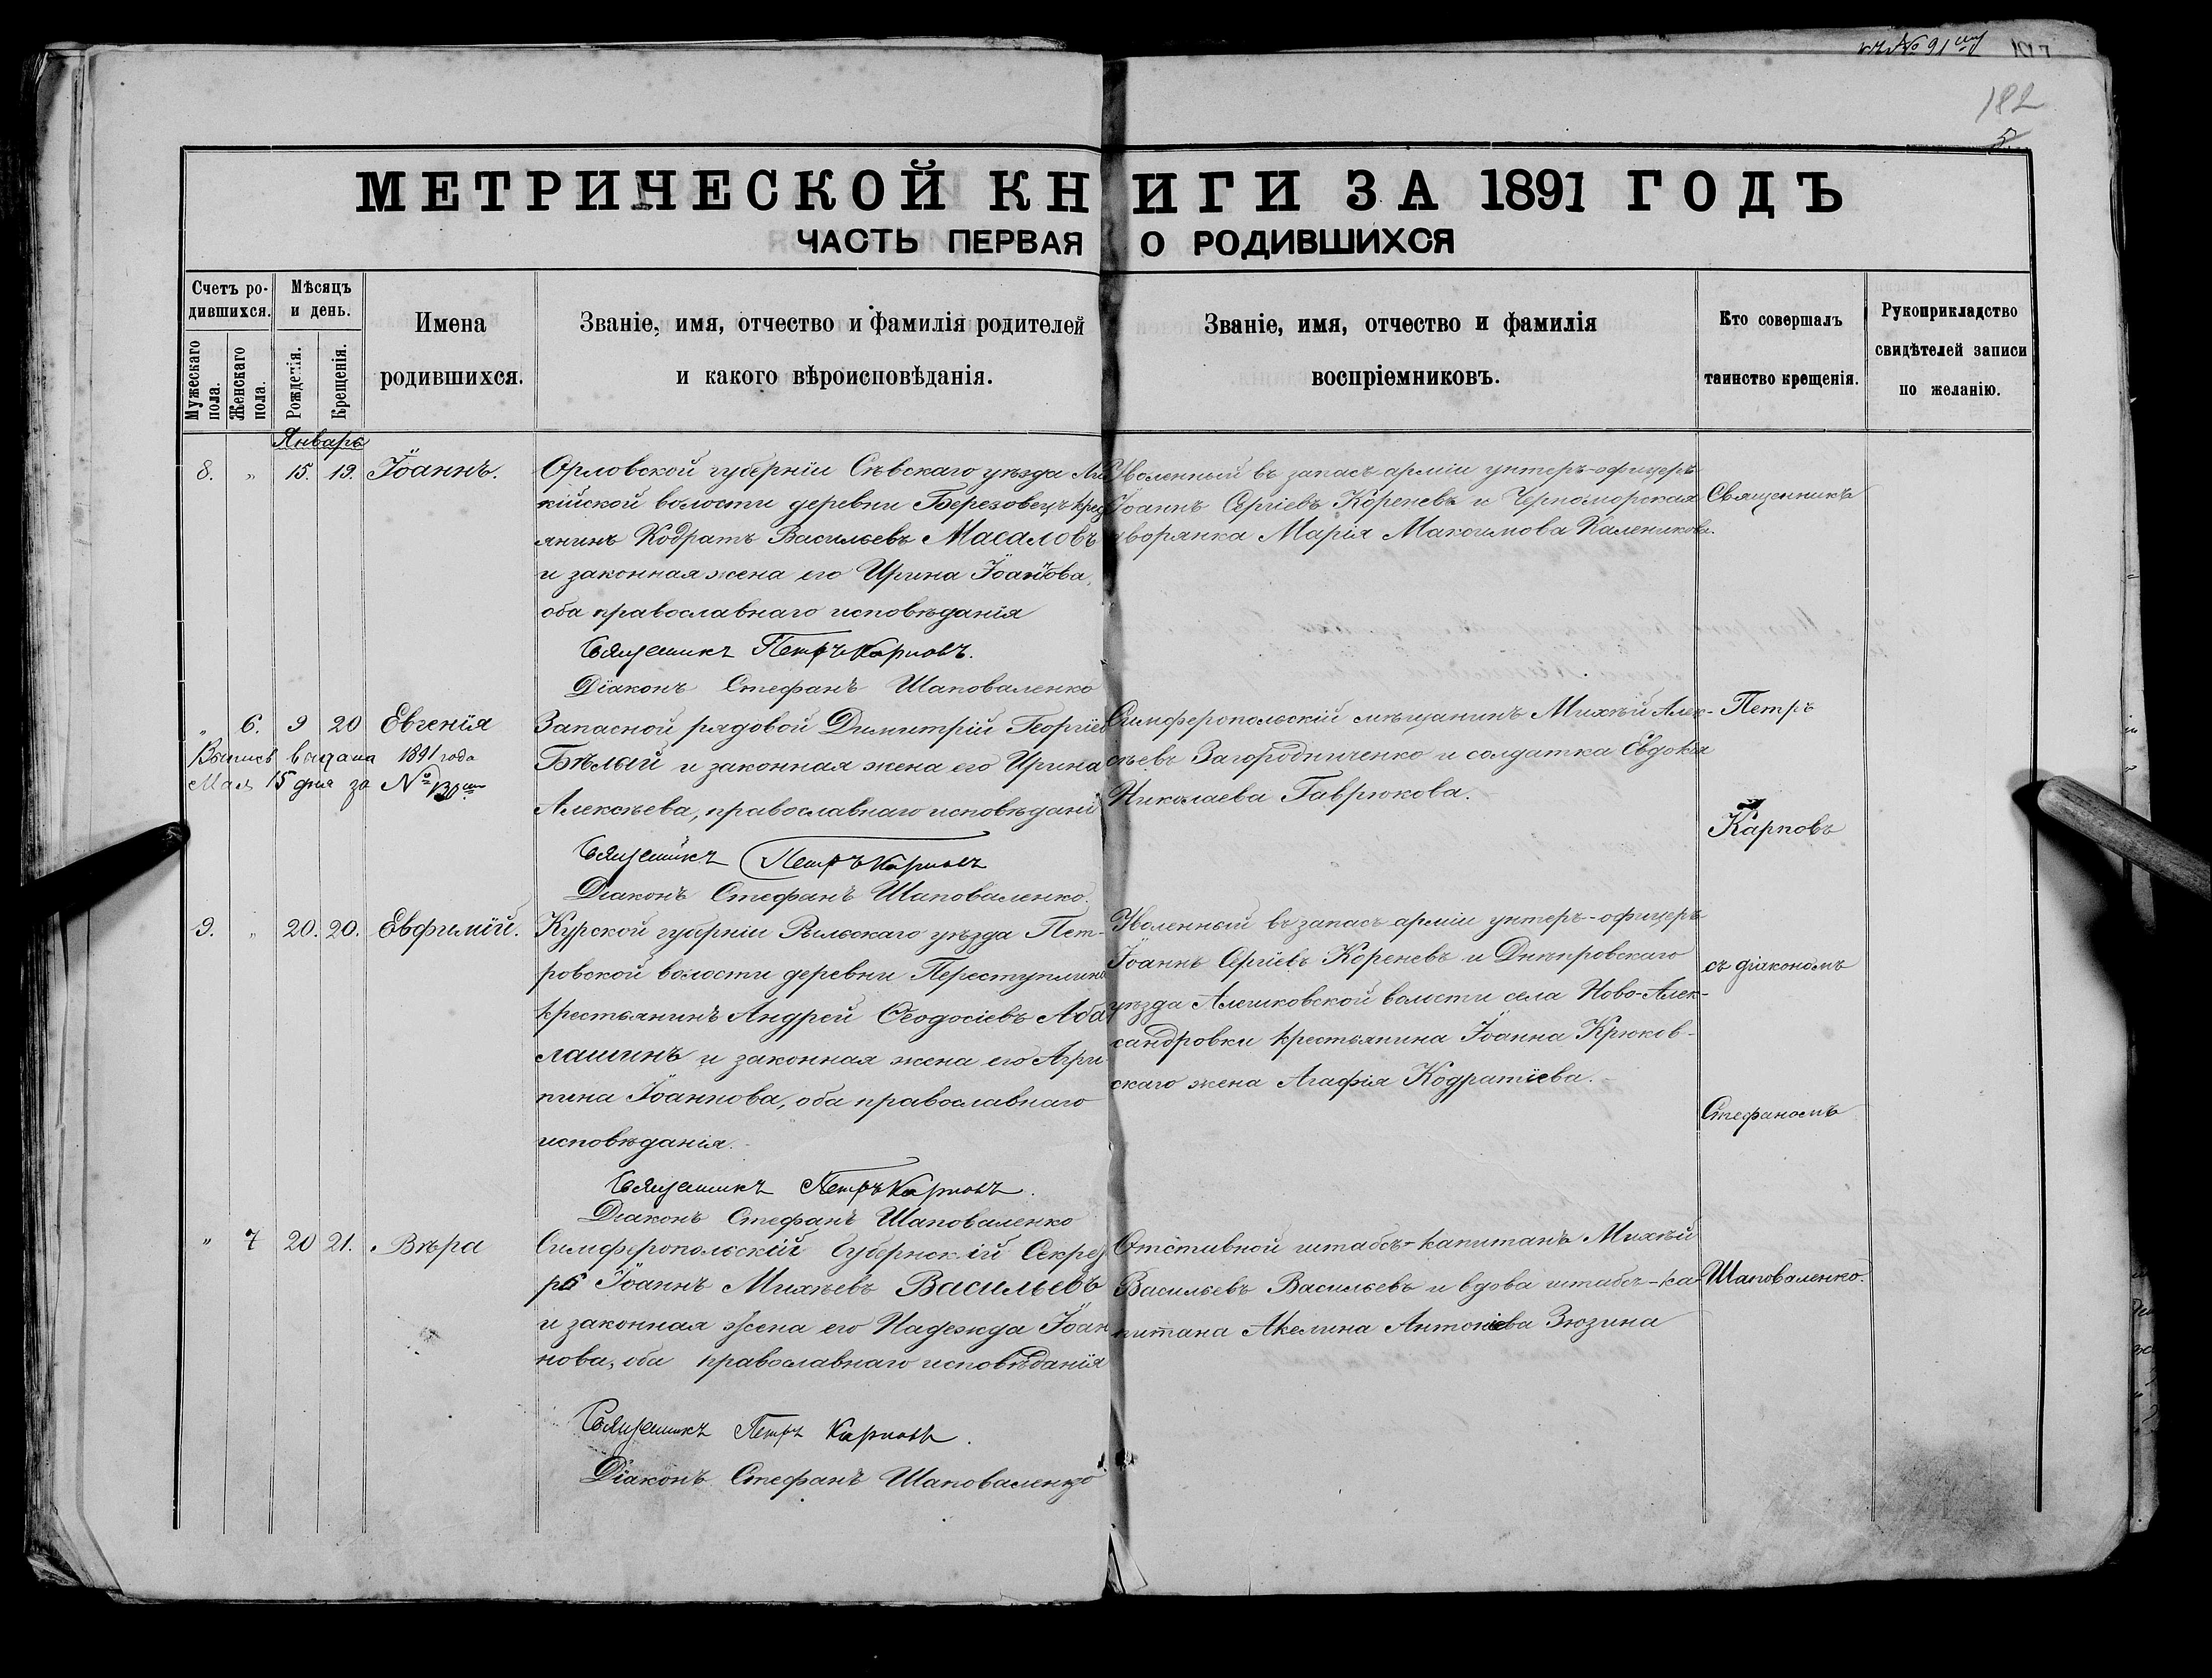 182
МЕТРИЧЕСКОЙ КНИГИ ЗА 1891 ГОДЪ
ЧАСТЬ ПЕРВАЯ О РОДИВШИХСЯ
Счетъ ро-
дившихся.
Мужескаго пола.
Женскаго пола.
Мѣсяцъ
и день.
Рожденія.
Крещенія.
Имена
родившихся.
Званіе, имя, отчество и фамилія родителей
и какого вѣроисповѣданія.
Званіе, имя, отчество и фамилія
воспріемниковъ.
Кто совершалъ
таинство крещенія.
Рукоприкладство
свидѣтелей записи
по желанію.
Январь
8. " 15. 19. Іоаннъ.
Орловской губерніи Сѣвскаго уѣзда
кійской волости деревни Березовецъ крес
янинъ Кодратъ Васильевъ Масаловъ
и законная жена его Ирина Іоаннова,
оба православнаго исповѣданія
Священникъ Петръ Карповъ.
Діаконъ Стефанъ Шаповаленко
Уволенный въ запасъ арміи унтеръ-офицеръ
Іоаннъ Сергіевъ Кореневъ и Черноморская
дворянка Марія Максимова Каленикова.
" 6. 9 20 Евгенія
Выпись выдана 1891 года
Мая 15 дня за №
Запасной рядовой Димитрій Георгіев
Бѣлый и законная жена его Ирина
Алексѣева, православнаго исповѣдані
Священникъ Петръ Карповъ
Діаконъ Стефанъ Шаповаленко.
Симферопольскій мѣщанинъ Михѣй Алек-
сѣевъ Загородниченко и солдатка Евдокія
Николаева Гаврюкова.
9. " 20. 20. Евфимій.
Курской губерніи Рыльскаго уѣзда Пет-
ровской волости деревни Переступлина
крестьянинъ Андрей Ѳеодосіевъ Аба
лашинъ и законная жена его Агри-
пина Іоаннова, оба православнаго
исповѣданія.
Священникъ Петръ Карповъ.
Діаконъ Стефанъ Шаповаленко
Уволенный въ запасъ арміи унтеръ-офицеръ
Іоаннъ Сергіевъ Кореневъ и Днѣпровскаго
уѣзда Алешковской волости села Ново-Алек-
сандровки крестьянина Іоанна Крюков-
скаго жена Агафія Кодратіева.
" 7 20 21. Вѣра
Симферопольскій Губернскій Секрет
рь Іоаннъ Михѣевъ Васильевъ
и законная жена его Надежда Іоан
нова, оба православнаго исповѣданія
Священникъ Петръ Карповъ.
Діаконъ Стефанъ Шаповаленко
Отставной штабсъ-капитанъ Михѣй
Васильевъ Васильевъ и вдова штабсъ-ка-
питана Акелина Антоніева Зюзина
Священникъ
Петръ
Карповъ
съ діакономъ
Стефаномъ
Шаповаленко.